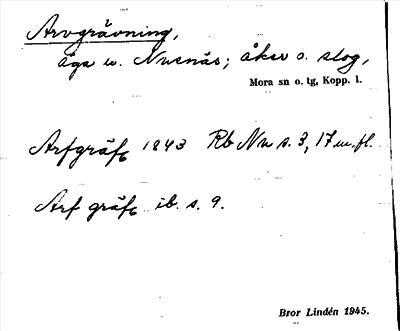 Arvgrävning,
äga u. Nusnäs; åker o. slog,
Mora sn o. tg, Kopp. l.
Arfgräfg 1843 Rb Nu s. 3, 17 m. fl.
Arf gräfg ib. s. 9.
Bror Lindén 1945.